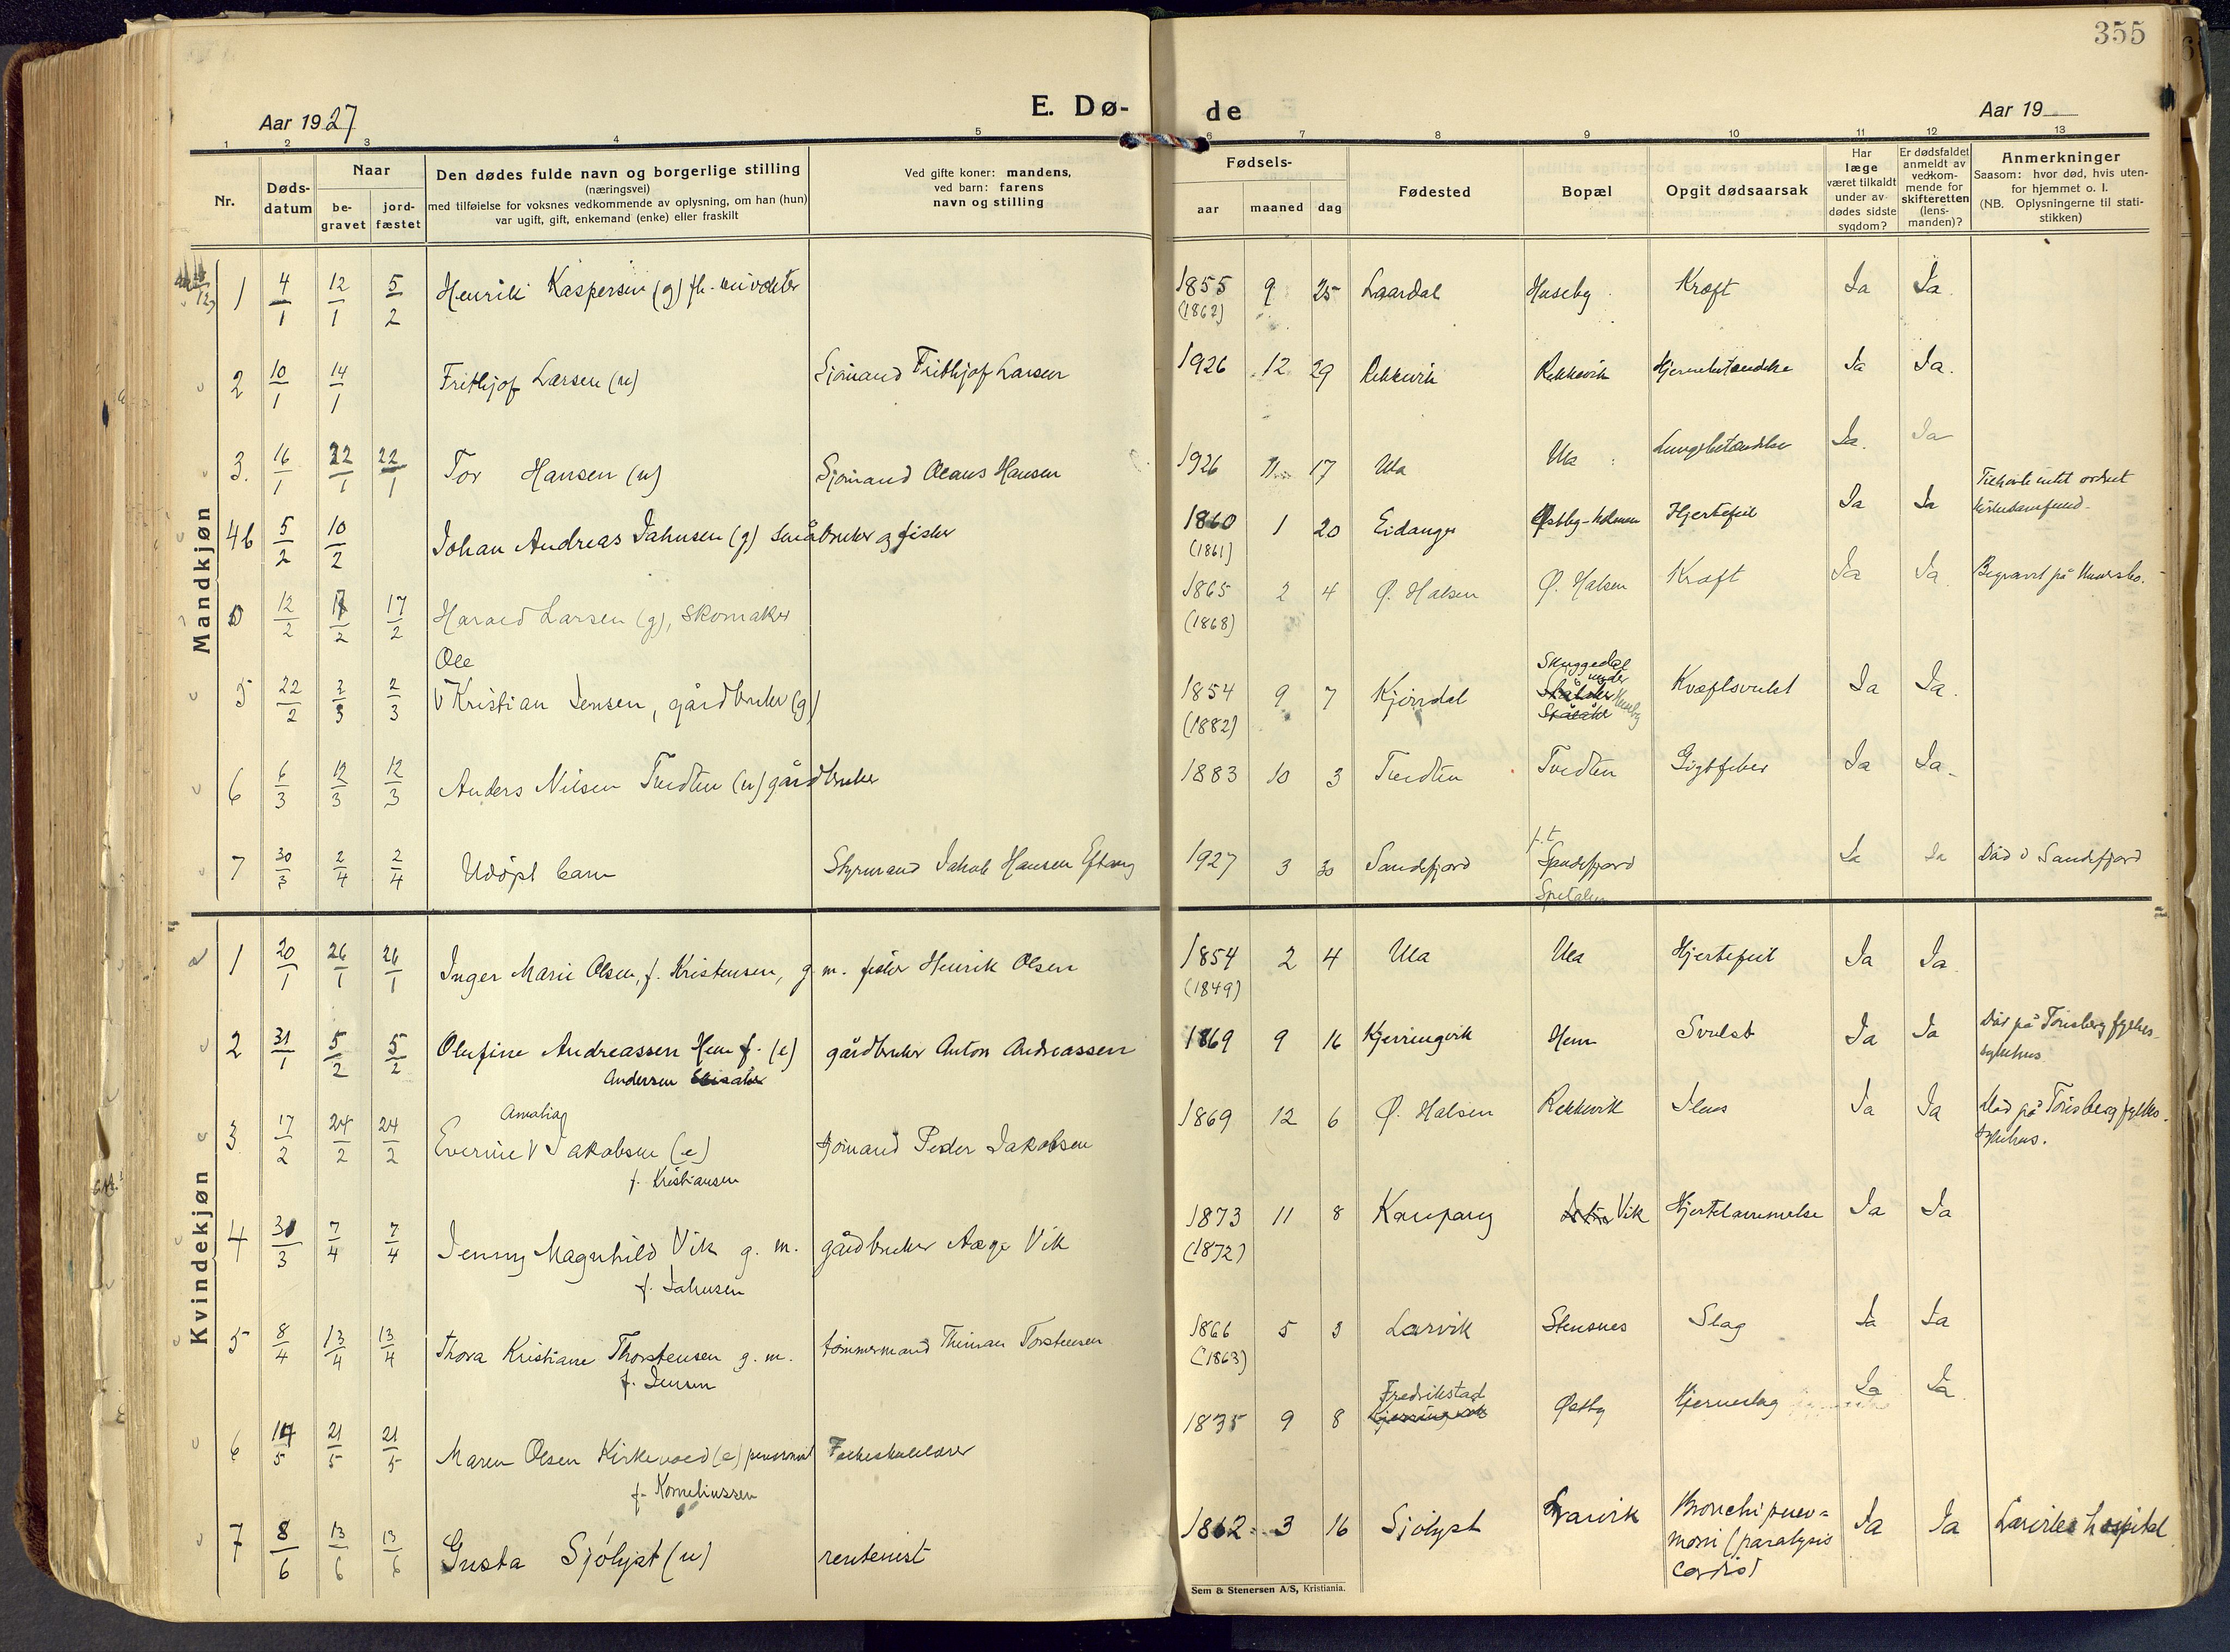 355
Aar 1927
E. Dø-
de
Aar 19
1 2 3 4 5 6 7 8 9 10 11 12 13
Nr.
Døds-
datum
Naar
be-
gravet
jord-
fæstet
Den dødes fulde navn og borgerlige stilling
(næringsvei)
med tilføielse for voksnes vedkommende av oplysning, om han (hun)
var ugift, gift, enkemand (enke) eller fraskilt
Ved gifte koner: mandens,
ved barn: farens
navn og stilling
Fødsels-
aar maaned dag
Fødested
Bopæl
Opgit dødsaarsak
Har
læge
været tilkaldt
under av-
dødes sidste
sygdom?
Er dødsfaldet
anmeldt av
vedkom-
mende for
skifteretten
(lens-
manden)?
Anmerkninger
Saasom: hvor død, hvis uten-
for hjemmet o. l.
(NB. Oplysningerne til stati-
stikken)
Mandkjøn
1 4/1 12/1 5/2 Henrik Kaspersen (g) fh. 1855 9 25 Laardal Huseby Kræft Ja Ja
(1862)
2 10/1 14/1 Frithjof Larsen (u) Sjömand Frithjof Larsen 1926 12 29 Rekkevik Rekkevik Hjernebetændelse Ja Ja.
3. 16/1 22/1 22/1 Tor Hansen (u) Sjömand Olaus Hansen 1926 11 17 Ula Ula Lungebetændelse Ja. Ja
4b 5/2 10/2 Johan Andreas Jahnsen (g) småbruker og fisker 1860 1 20 Eidanger Østby-holmen Hjertefeil Ja Ja Tilhörte intet ordnet
kirkesamfund.
(1861)
12/2 17/2 17/2 Harald Larsen (g), skomaker 1865 2 4 Ø. Halsen Ø. Halsen Kræft Ja Ja. Begravet på
(1868)
Ole
5 22/2 2/3 2/3 V Kristian Jensen, gårdbruker (g) 1854 9 7 Skuggedal
under Huseby
Kræftsvulst Ja Ja.
(1882)
6 6/3 12/3 12/3 Anders Nilsen Tvedten (u) gårdbruker 1883 10 3 Tvedten Tvedten Gigtfeber Ja Ja.
7 30/3 2/4 2/4 Udöpt barn Styrmand Jakob Hansen Eftang 1927 3 30 Sandefjord f. t.
Sandefjord
Spetalen
Ja Ja Död i Sandefjord
Kvindekjøn
1 20/1 26/1 26/1 Inger Marie Olsen, f. Kristensen, g. m. fisker Henrik Olsen 1854 2 4 Ula Ula Hjertefeil Ja Ja.
(1849)
2 31/1 5/2 5/2 Olufine Andreassen Hem f. (e) gårdbruker Anton Andreassen 1869 9 16 Kjerringvik Hem Svulst Ja Ja Död på Tönsberg fylkes-
sykehus.
Andersen
Amalia
3 17/2 24/2 24/2 Everine V Jakobsen (e) sjömand Peder Jakobsen 1869 12 6 Ø. Halsen Rekkevik Ileus Ja Ja Död på Tönsberg fylkes.
sykehus.
f. Kristiansen
4 30/3 7/4 7/4 Jenny Magnhild Vik g. m. gårdbruker Aage Vik 1873 11 8 Kaupang Vik Hjertelammelse Ja Ja
f. Jahnsen
(1872)
5 8/4 13/4 13/4 Thora Kristiane Thorstensen g. m. tömmermand Torstensen 1866 5 3 Larvik Stensnes Slag Ja Ja
f. Jensen
(1863)
6 14/5 21/5 21/5 Maren Olsen Kirkevold (e) pensionist Folkeskolelærer 1835 9 8 Fredrikstad
Kjerringvik
Østby Hjerneslag Ja Ja.
f. Korneliussen
7 8/6 13/6 13/6 Gusta Sjölyst (u) rentenist 1862 3 16 Sjölyst Larvik Bronchi pnev-
moni (paralysis
cordis)
Ja Ja Larviks hospital
Sem & Stenersen A/S, Kristiania.